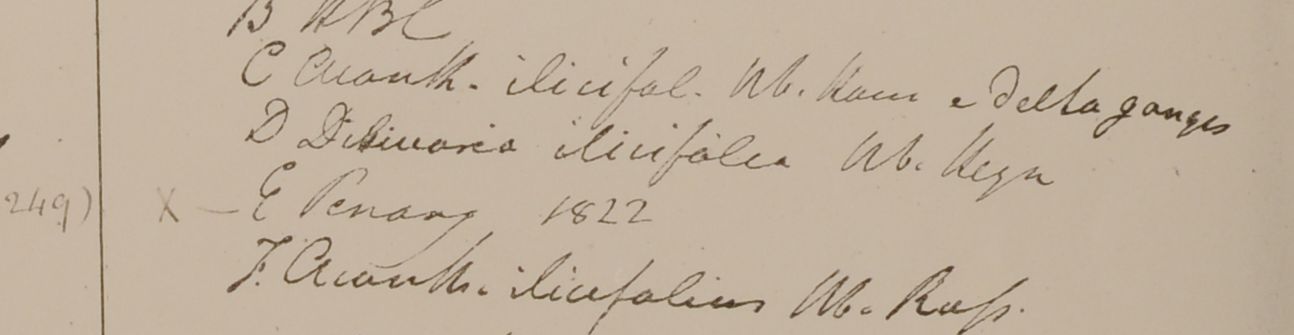 B HBC
C Acanth. ilicifol. Hb. Ham e Delta ganges
D Dilivaria ilicifolia Hb. Heyn
249) X – E Penang 1822
F. Acanth. ilicifolius Hb. Russ.